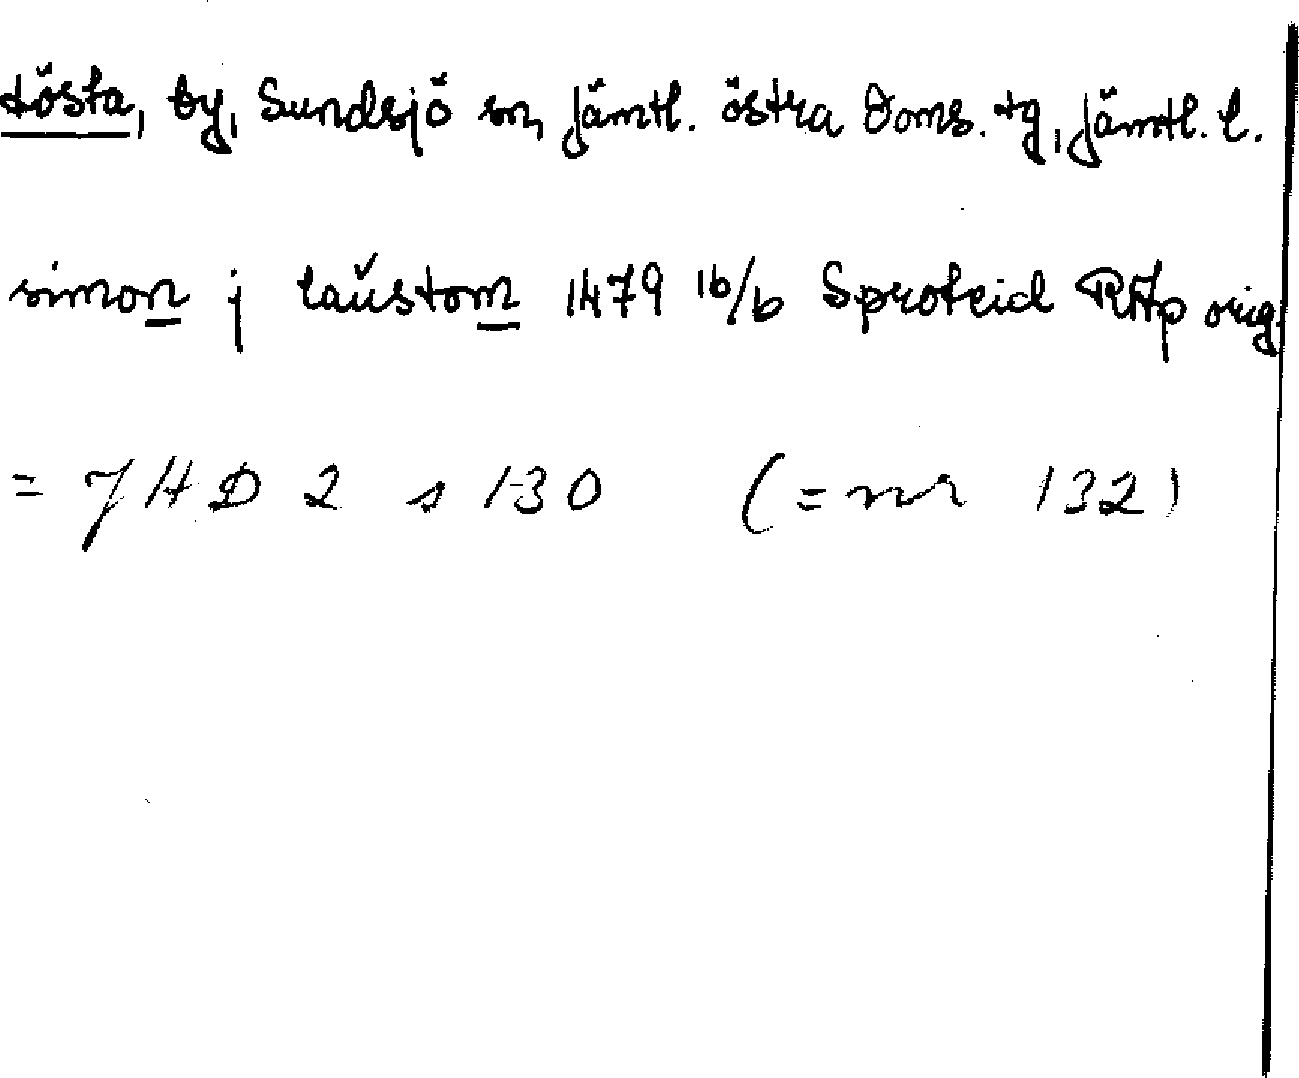 Lösta, by, Sundsjö sn, Jämtl. östra Doms. tg, Jämtl. l.
simon j laŭstom 1479 16/6 Sproteid RAp orig.
= JHD 2 s 130 (= nr 132)